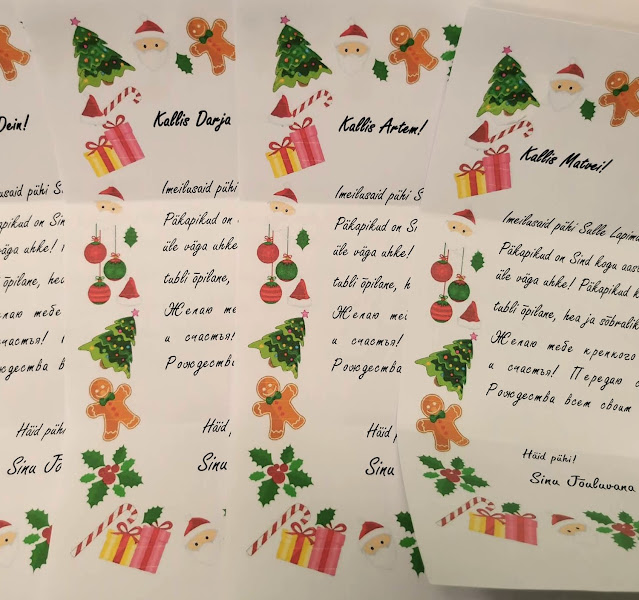 Dein!
usaid pühi S
üga uhke!
Häid pühi
Sinu Jõ
Kallis Darja
Imeilusaid pühi
Päkapikud on
üle väga uhke!
tubli õpilane,
Желаю
и счастья!
Рождества
Häid
Sinu
Kallis Artem!
Imeilusaid pühi S
Päkapikud on Si
üle väga uhke!
tubli õpilane, h
Желаю
и счастья!
Рождества
Häid
Sinu
Kallis Matvei!
Imeilusaid pühi Sulle Lapima
Päkapikud on Sind kogu aas
üle väga uhke! Päkapikud k
tubli õpilane, hea ja sõbralik
Желаю тебе крепкого
и счастья! Передаю
Рождества всем своим
Häid pühi!
Sinu Jõuluvana